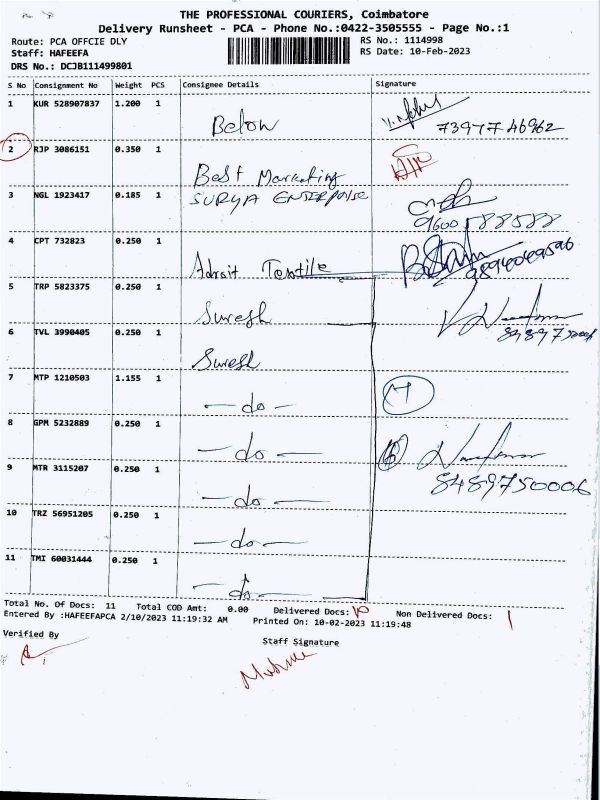 THE PROFESSIONAL COURIERS, Coimbatore
Delivery Runsheet - PCA - Phone No.:0422-3505555 - Page No.:1
Route: PCA OFFCIE DLY RS No.: 1114998
Staff: HAFEEFA RS Date: 10-Feb-2023
DRS No.: DCJB111499801
S No Consignment No Weight PCS Consignee Details Signature
1 KUR 528907837 1.200 1 Below 73977 46962
2 RJP 3086151 0.350 1 Best Marketing
3 NGL 1923417 0.185 1 SURYA ENTERPRISE 9600188588
4 CPT 732823 0.250 1 Adroit Textile
5 TRP 5823375 0.250 1 Suresh 8489750006
6 TVL 3990405 0.250 1 Suresh
7 MTP 1210503 1.155 1 - do - 7
8 GPM 5232889 0.250 1 - do -
9 MTR 3115207 0.250 1 - do - 8489750006
10 TRZ 56951205 0.250 1 - do -
11 TMI 60031444 0.250 1 - do -
Total No. Of Docs: 11 Total COD Amt: 0.00 Delivered Docs: 10 Non Delivered Docs: 1
Entered By :HAFEEFAPCA 2/10/2023 11:19:32 AM Printed On: 10-02-2023 11:19:48
Verified By Staff Signature